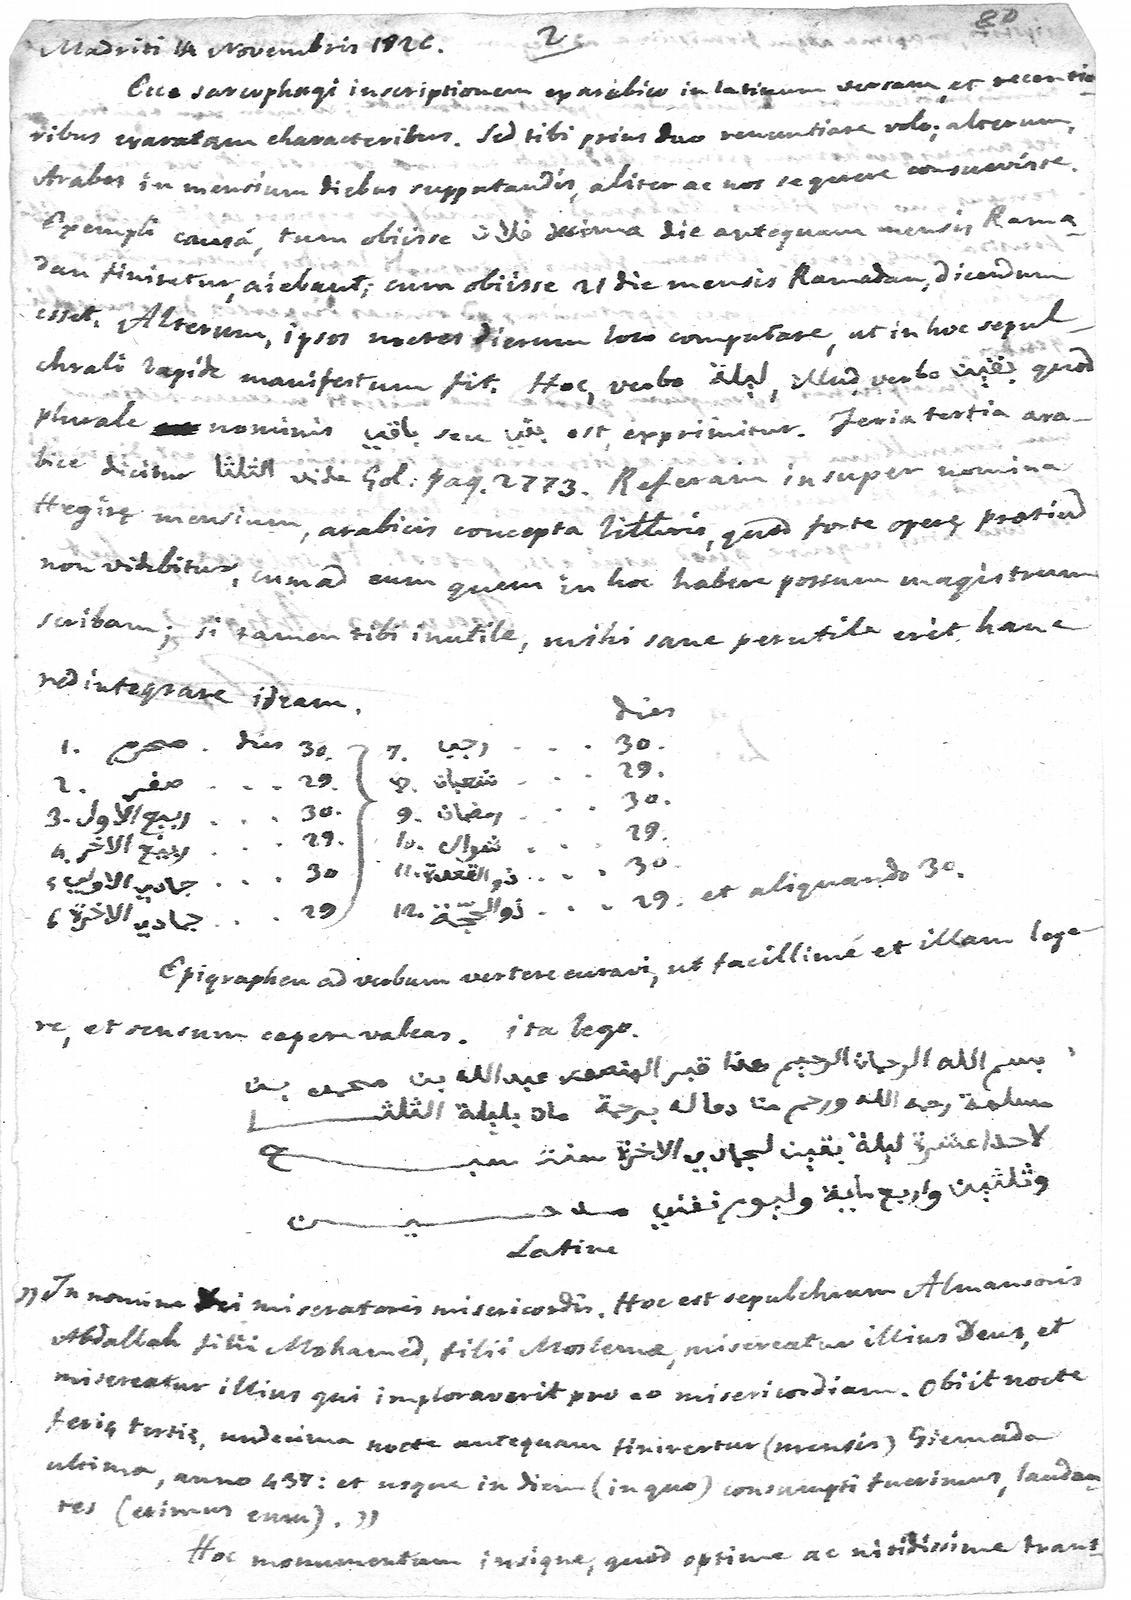 80
2
Madriti 14 Novembris 1826.
Ecce sarcophagi inscriptionem ex arabico in latinum versam, et recentio-
ribus exaratam characteribus. Sed tibi prius duo renuntiare volo; alterum,
Arabes in mensium diebus supputandis, aliter ac nos se gerere consuevisse.
Exempli causâ, tum obiisse فلان decima die antequam mensis Rama-
dan finiretur, aiebant; cum obiisse 21 die mensis Ramadan, dicendum
esset. Alterum, ipsos noctes dierum loco computare, ut in hoc sepul-
chrali lapide manifestum fit. Hoc, verbo ليلة, illud verbo بقين quod
plurale nominis باقي seu بقي est, exprimitur. Feria tertia ara-
bice dicitur الثلثا vide Gol: pag. 2773. Referam insuper nomina
Hegirę mensium, arabicis concepta litteris, quod forte operę pretium
non videbitur, cum ad eum quem in hoc habere possum magistrum
scribam; si tamen tibi inutile, mihi sane perutile erit hanc
redintegrare ideam.
dies
1. محرم . dies 30. 7. رجب . . . 30.
2. صفر . . . 29. 8. شعبان . . . 29.
3. ربيع الاول . . . 30. 9. رمضان . . . 30.
4. ربيع الاخر . . . 29. 10. شوال . . . 29.
5 جمادي الاولي . . . 30 11. ذو القعدة . . . 30.
6 جمادي الاخرة . . . 29 12. ذو الحجّة . . . 29. et aliquando 30.
Epigraphen ad verbum vertere curavi, ut facillimé et illam lege-
re, et sensum capere valeas. ita lego.
بسم الله الرحمان الرحيم هذا قبر المنصور عبدالله بن محمد بن
مسلمة رحمه الله ورحم منا دعا له برحمة مات بليلة الثلثا
لاحدا عشرة ليلة بقين لجمادي الاخرة سنة سبع
وثلثين واربع ماية وليوم نفني مدحين
Latine
„ In nomine Dei miseratoris misericordis. Hoc est sepulchrum Almansoris
Abdallah filii Mohamed, filii Moslemæ, misereatur illius Deus, et
misereatur illius qui imploraverit pro eo misericordiam. Obiit nocte
ferię tertię, undecima nocte antequam finiretur (mensis) Giemada
ultima, anno 437: et usque in diem (in quo) consumpti fuerimus, laudan-
tes (erimus eum). „
Hoc monumentum insigne, quod optime ac nitidissime trans-